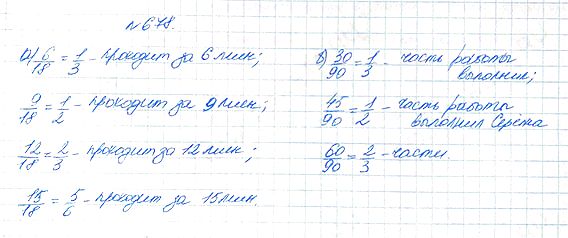 №678.
а) 6/18 = 1/3 - проходит за 6 мин;
9/18 = 1/2 - проходит за 9 мин;
12/18 = 2/3 - проходит за 12 мин;
15/18 = 5/6 - проходит за 15 мин.
б) 30/90 = 1/3 - часть работы
выполнил;
45/90 = 1/2 - часть работы
выполнил Серёжа
60/90 = 2/3 - части.